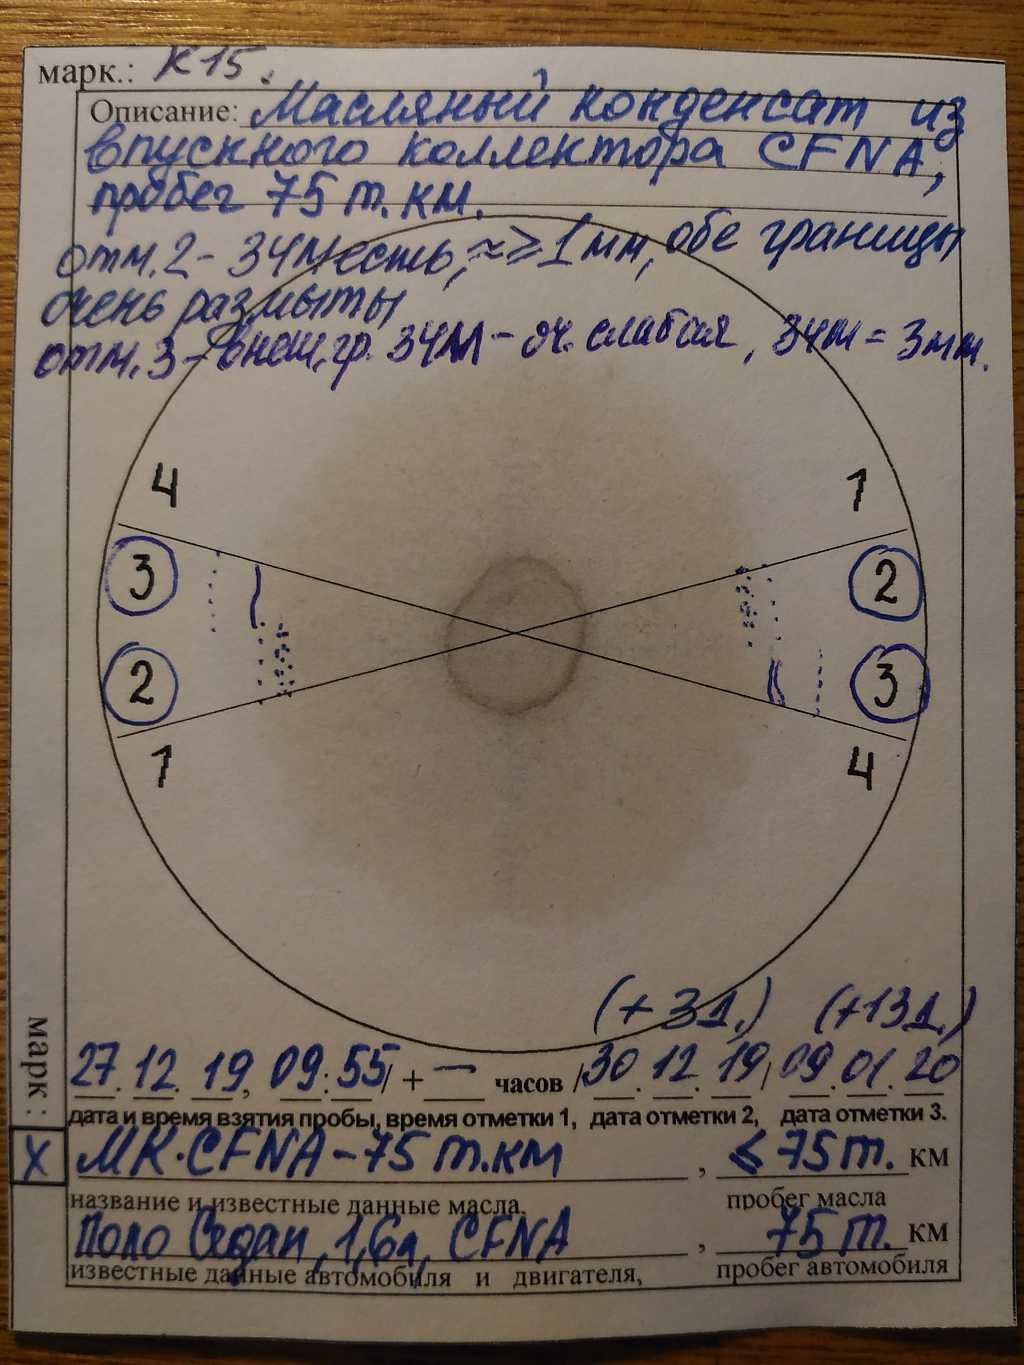 марк.: К15.
Описание: Масляный конденсат из
впускного коллектора CFNA,
пробег 75 т.км.
отм.2 - ЗЧМ есть, ≈≥1мм, обе границы
очень размыты
отм.3 - внеш.гр. ЗЧМ - оч. слабая, ЗЧМ = 3мм.
4 1
3 2
2 3
1 4
(+3д.) (+13д.)
марк:
27.12.19, 09:55/ + — часов /30.12.19/ 09.01.20
дата и время взятия пробы, время отметки 1, дата отметки 2, дата отметки 3.
X МК.CFNA-75 т.км, ≤75т. км
название и известные данные масла, пробег масла
Поло Седан, 1,6л, CFNA, 75т. км
известные данные автомобиля и двигателя, пробег автомобиля